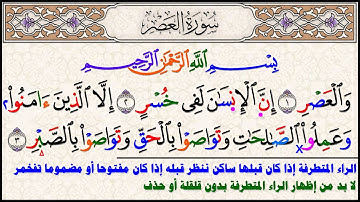 سُورَةُ الْعَصْرِ
بِسْمِ اللَّهِ الرَّحْمَٰنِ الرَّحِيمِ
وَالْعَصْرِ ۝١ إِنَّ الْإِنسَانَ لَفِي خُسْرٍ ۝٢ إِلَّا الَّذِينَ ءَامَنُوا
وَعَمِلُوا الصَّالِحَاتِ وَتَوَاصَوْا بِالْحَقِّ وَتَوَاصَوْا بِالصَّبْرِ ۝٣
الراء المتطرفة إذا كان قبلها ساكن ننظر قبله إذا كان مفتوحا أو مضموما تفخمر
لا بد من إظهار الراء المتطرفة بدون قلقلة أو حذف